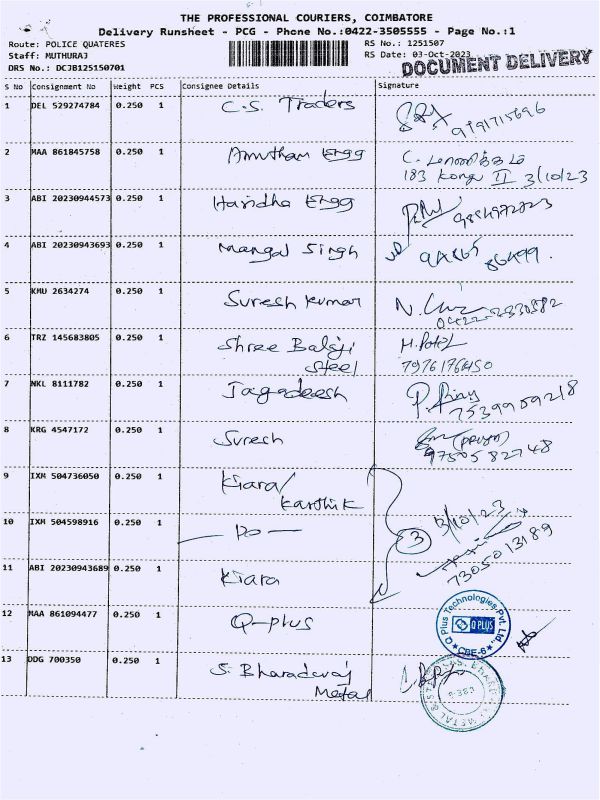 THE PROFESSIONAL COURIERS, COIMBATORE
Delivery Runsheet - PCG - Phone No.:0422-3505555 - Page No.:1
Route: POLICE QUATERES RS No.: 1251507
Staff: MUTHURAJ RS Date: 03-Oct-2023
DRS No.: DCJB125150701 DOCUMENT DELIVERY
S No Consignment No Weight PCS Consignee Details Signature
1 DEL 529274784 0.250 1 C.S. Traders
9191715696
2 MAA 861845758 0.250 1 Amutham Engg C.
183 Kongu II 3/10/23
3 ABI 20230944573 0.250 1 Haridha Engg
4 ABI 20230943693 0.250 1 Mangal Singh
86499.
5 KMU 2634274 0.250 1 Suresh Kumar N.
0422-2330582
6 TRZ 145683805 0.250 1 Shree Balaji Steel H. Patel
7976176450
7 NKL 8111782 0.250 1 Jagadeesh P.
7539959218
8 KRG 4547172 0.250 1 Suresh
9750582748
9 IXM 504736050 0.250 1 Kiara/ Karthik
10 IXM 504598916 0.250 1 — Do — 3 3/10/23
7305013189
11 ABI 20230943689 0.250 1 Kiara
12 MAA 861094477 0.250 1 Q-plus
Q Plus Technologies Pvt. Ltd.,
Q PLUS
CBE-6
13 DDG 700350 0.250 1 S. Bharadwaj Metal